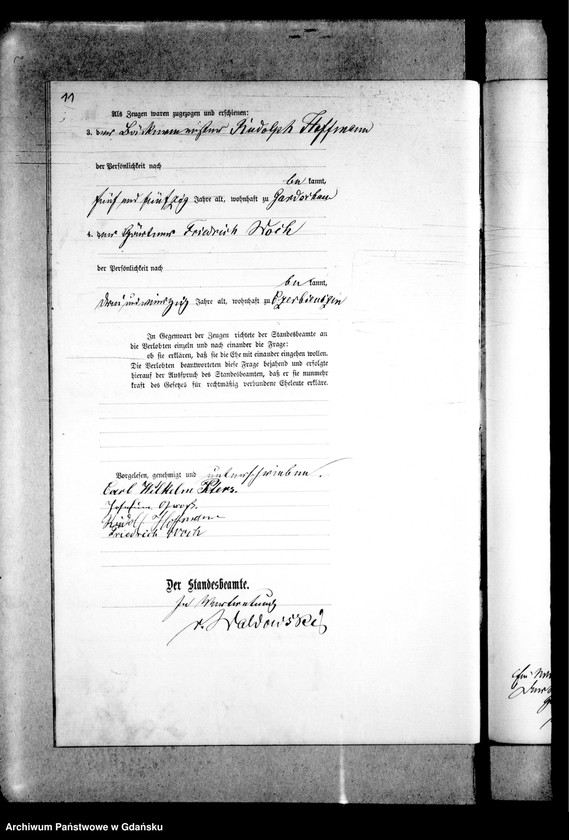 11
Als Zeugen waren zugezogen und erschienen:
3. der Rudolph Hoffmann
der Persönlichkeit nach
be kannt,
fünf und fünfzig Jahre alt, wohnhaft zu
4. der Gärtner Friedrich Woch
der Persönlichkeit nach
be kannt,
Jahre alt, wohnhaft zu Czerbienschin
In Gegenwart der Zeugen richtete der Standesbeamte an
die Verlobten einzeln und nach einander die Frage:
ob sie erklären, daß sie die Ehe mit einander eingehen wollen.
Die Verlobten beantworteten diese Frage bejahend und erfolgte
hierauf der Ausspruch des Standesbeamten, daß er sie nunmehr
kraft des Gesetzes für rechtmäßig verbundene Eheleute erkläre.
Vorgelesen, genehmigt und unterschrieben.
Carl Wilhelm Peters.
Rudolf Hoffmann
Friedrich Woch
Der Standesbeamte.
In Vertretung
v. Waldowski
Archiwum Państwowe w Gdańsku